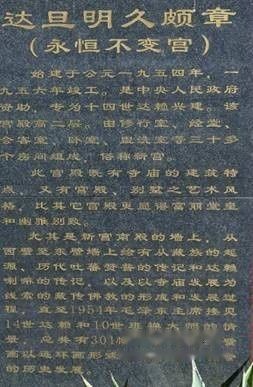 达旦明久颇章
（永恒不变宫）
始建于公元一九五四年，一
九五六年竣工。是中央人民政府
资助，专为十四世达赖兴建。该
宫殿高二层。由修行室、经堂、
会客室、卧室、盥洗室等三十多
个房间组成，俗称新宫。
此宫殿既有寺庙的建筑特
点，又有宫殿、别墅之艺术风
格，比其它宫殿更显谓富丽堂皇
和幽雅别致。
尤其是新宫南殿的墙上，从
西壁至东壁墙上绘有从藏族的起
源、历代吐蕃赞普的传记和达赖
喇嘛的传记，以及以寺庙发展为
线索的藏传佛教的形成和发展过
程，直至1954年毛泽东主席接见
14世达赖和10世班禅大师的情
景，总共有301幅
画以连环画形式
的历史发展。